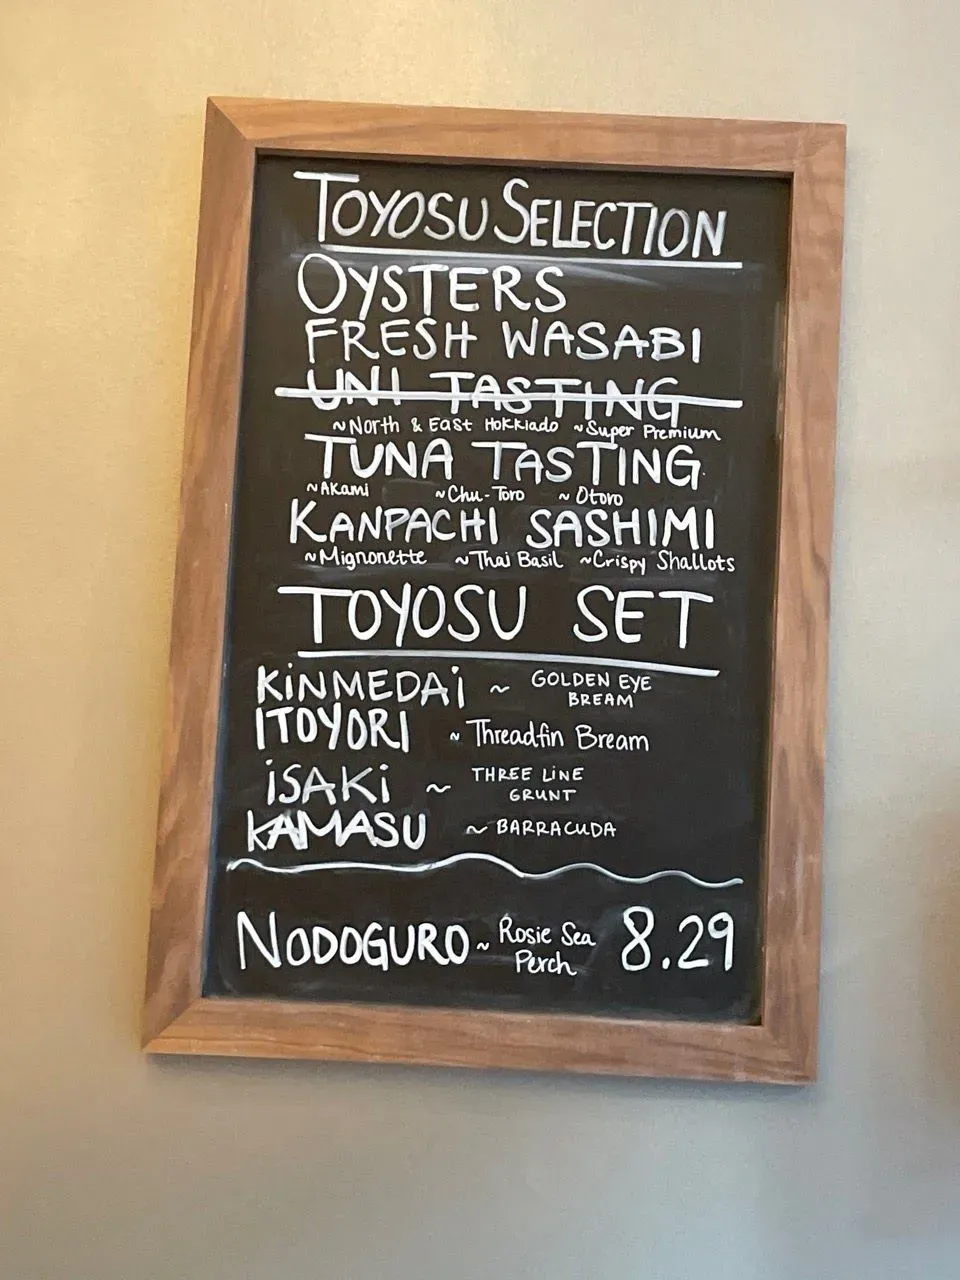 TOYOSU SELECTION
OYSTERS
FRESH WASABI
UNI TASTING
~North & East Hokkiado ~Super Premium
TUNA TASTING
~Akami ~Chu-Toro ~Otoro
KANPACHI SASHIMI
~Mignonette ~Thai Basil ~Crispy Shallots
TOYOSU SET
KiNMEDAi ~ GOLDEN EYE
BREAM
ITOYORI ~ Threadfin Bream
iSAKi ~ THREE LINE
GRUNT
KAMASU ~ BARRACUDA
NODOGURO ~ Rosie Sea
Perch 8.29